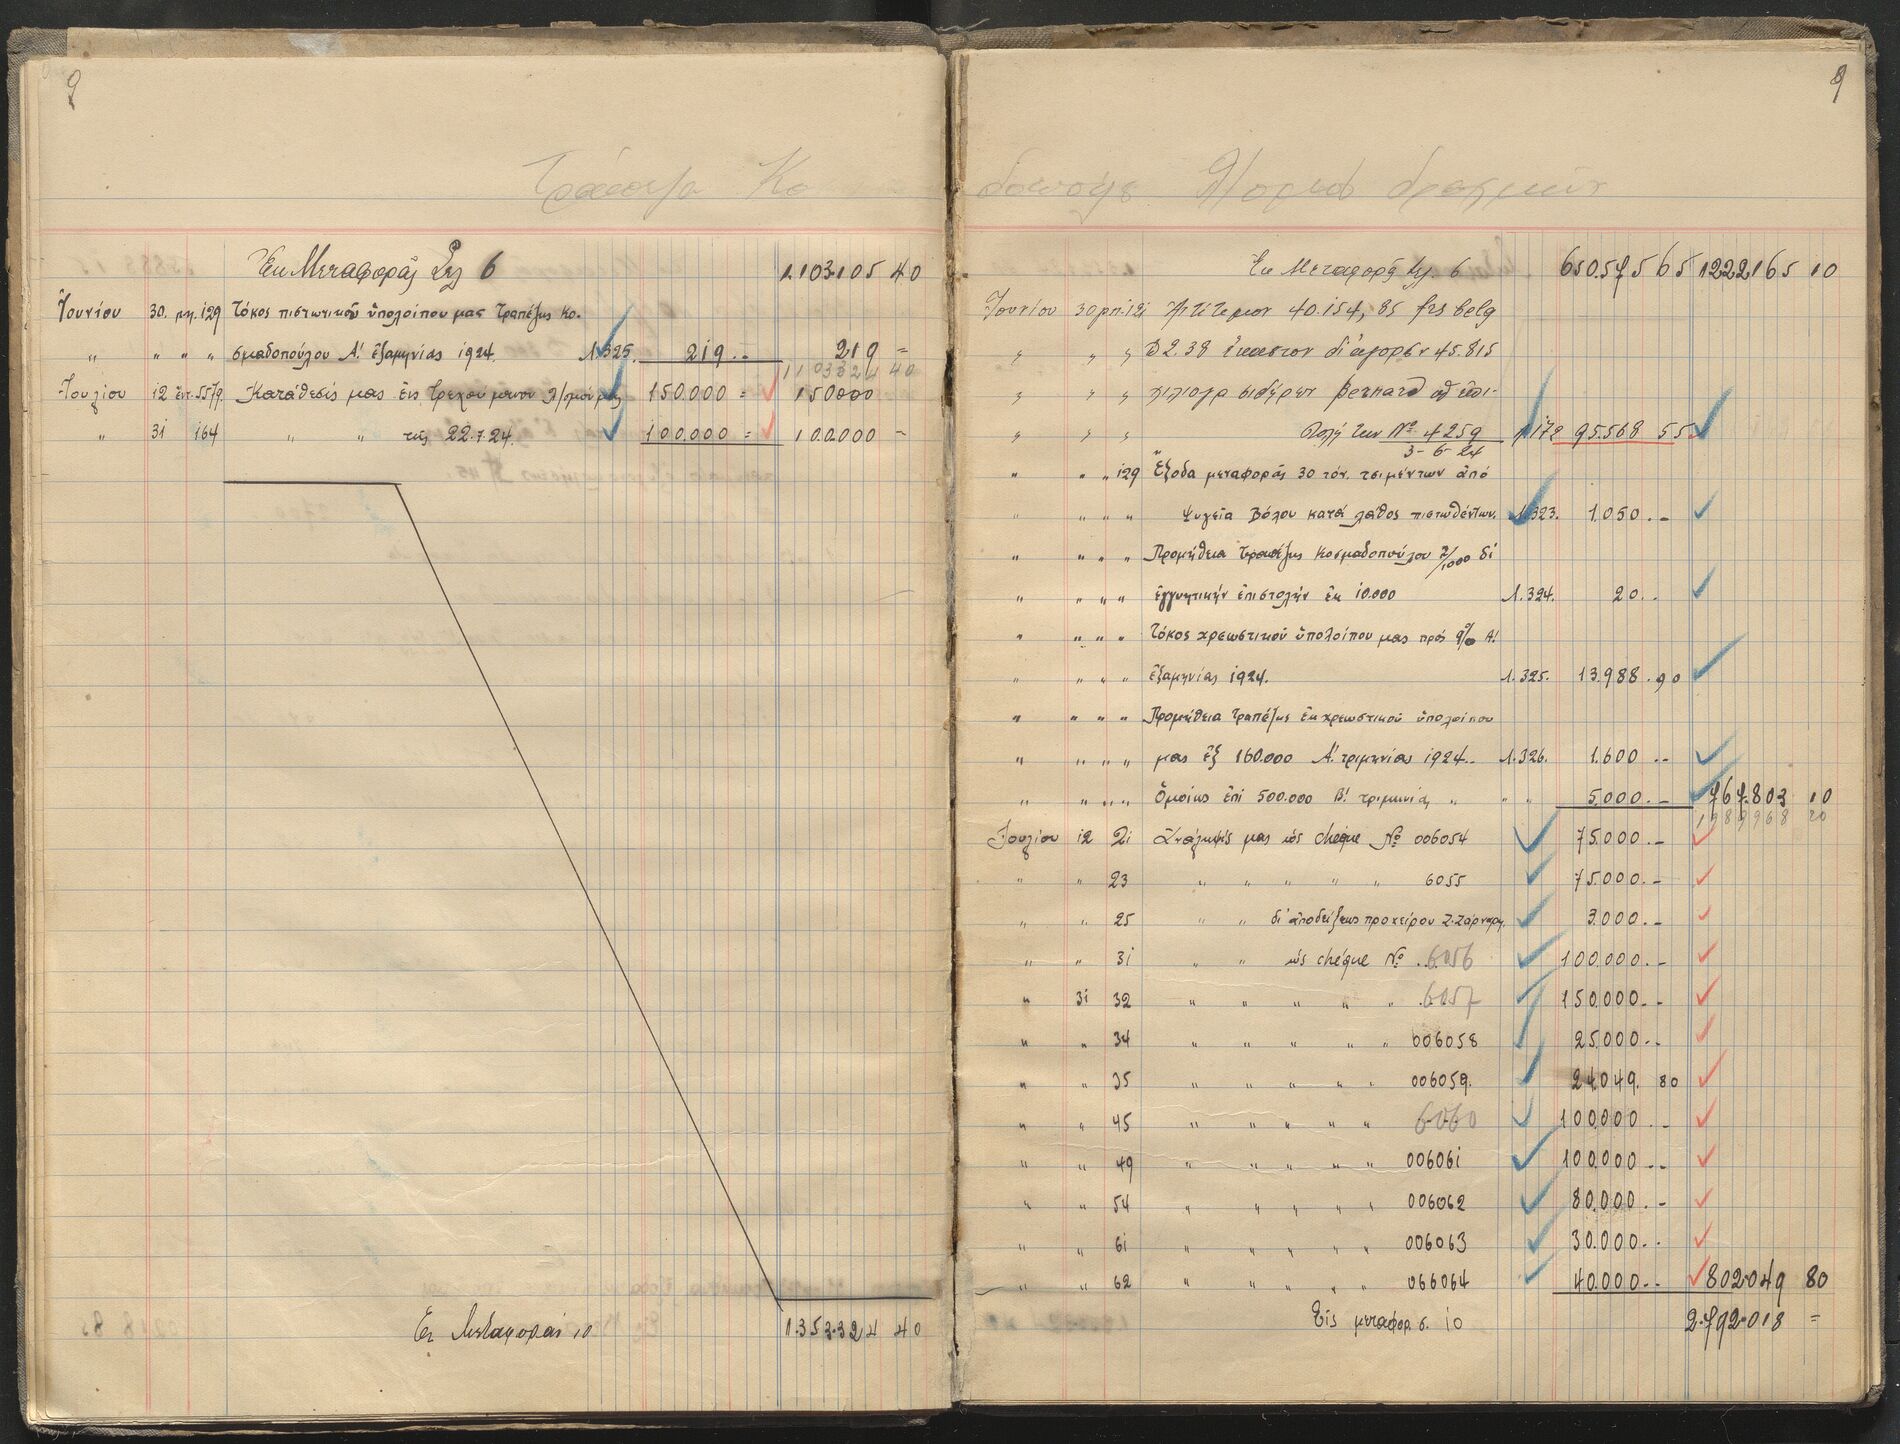 9
Τράπεζα Κο
Ἐκ Μεταφορᾶς Σελ 6 1.103.105 40
Ἰουνίου 30. 129 Τόκος πιστωτικοῦ ὑπολοίπου μας Τραπέζης Κο-
" " " " σμαδοπούλου Α! ἑξαμηνίας 1924. 1.325. 219 -- 219 =
1103324 40
Ἰουλίου 12 557/9 Κατάθεσίς μας εἰς τρεχούμενον λ/σμόν μας 150.000 = 150000
" 31 164 " " τῆς 22.7.24. 100.000 = 100000 -
Εἰς Μεταφοράν 10 1.353.324 40
9
δοπούλου Λ/σμός δραχμῶν
Ἐκ Μεταφορᾶς Σελ. 6 650.575 65 1222165 10
Ἰουνίου 30 121 Ἀντίτιμον 40.154,85 frs belg
" " " 2.38 ἕκαστον δι' ἀγορὰν 45.815
" " " χιλιόγρ σιδήρων Bernard ἐπι-
" " " Νο 4259 1.172 95.568 55
3-6-24
" " " 129 Ἔξοδα μεταφορᾶς 30 τόν. τσιμέντων ἀπό
" " " " Ψυγεῖα Βόλου κατά λάθος πιστωθέντων. 1.323. 1.050.--
" " " " Προμήθεια Τραπέζης Κοσμαδοπούλου 2/1000 δι'
" " " " ἐγγυητικήν ἐπιστολήν ἐκ 10.000 1.324. 20..
" " " " Τόκος χρεωστικοῦ ὑπολοίπου μας πρός 9% Α!
" " " " ἑξαμηνίας 1924. 1.325. 13.988.90
" " " " Προμήθεια Τραπέζης ἐκ χρεωστικοῦ ὑπολοίπου
" " " " μας ἐξ 160.000 Α! τριμηνίας 1924.. 1.326. 1.600 --
" " " " Ὁμοίως ἐπί 500.000 Β! τριμηνίας " " " 5.000.- 767.803 10
1989968 20
Ἰουλίου 12 21 Ἀνάληψίς μας ὡς chéque Νο 006054 75.000.-
" " 23 " " " " " 6055 75.000.-
" " 25 " " δι' ἀποδείξεως προχείρου 3.000.-
" " 31 " " ὡς chéque Νο 6056 100.000.-
" 31 32 " " " " " 6057 150.000.-
" " 34 " " " " " 006058 25.000..
" " 35 " " " " " 006059. 24.049. 80
" " 45 " " " " " 6060 100.000.-
" " 49 " " " " " 006061 100.000--
" " 54 " " " " " 006062 80.000.-
" " 61 " " " " " 006063 30.000..
" " 62 " " " " " 066064 40.000-- 802.049 80
Εἰς μεταφορ. σ. 10 2.792.018 =